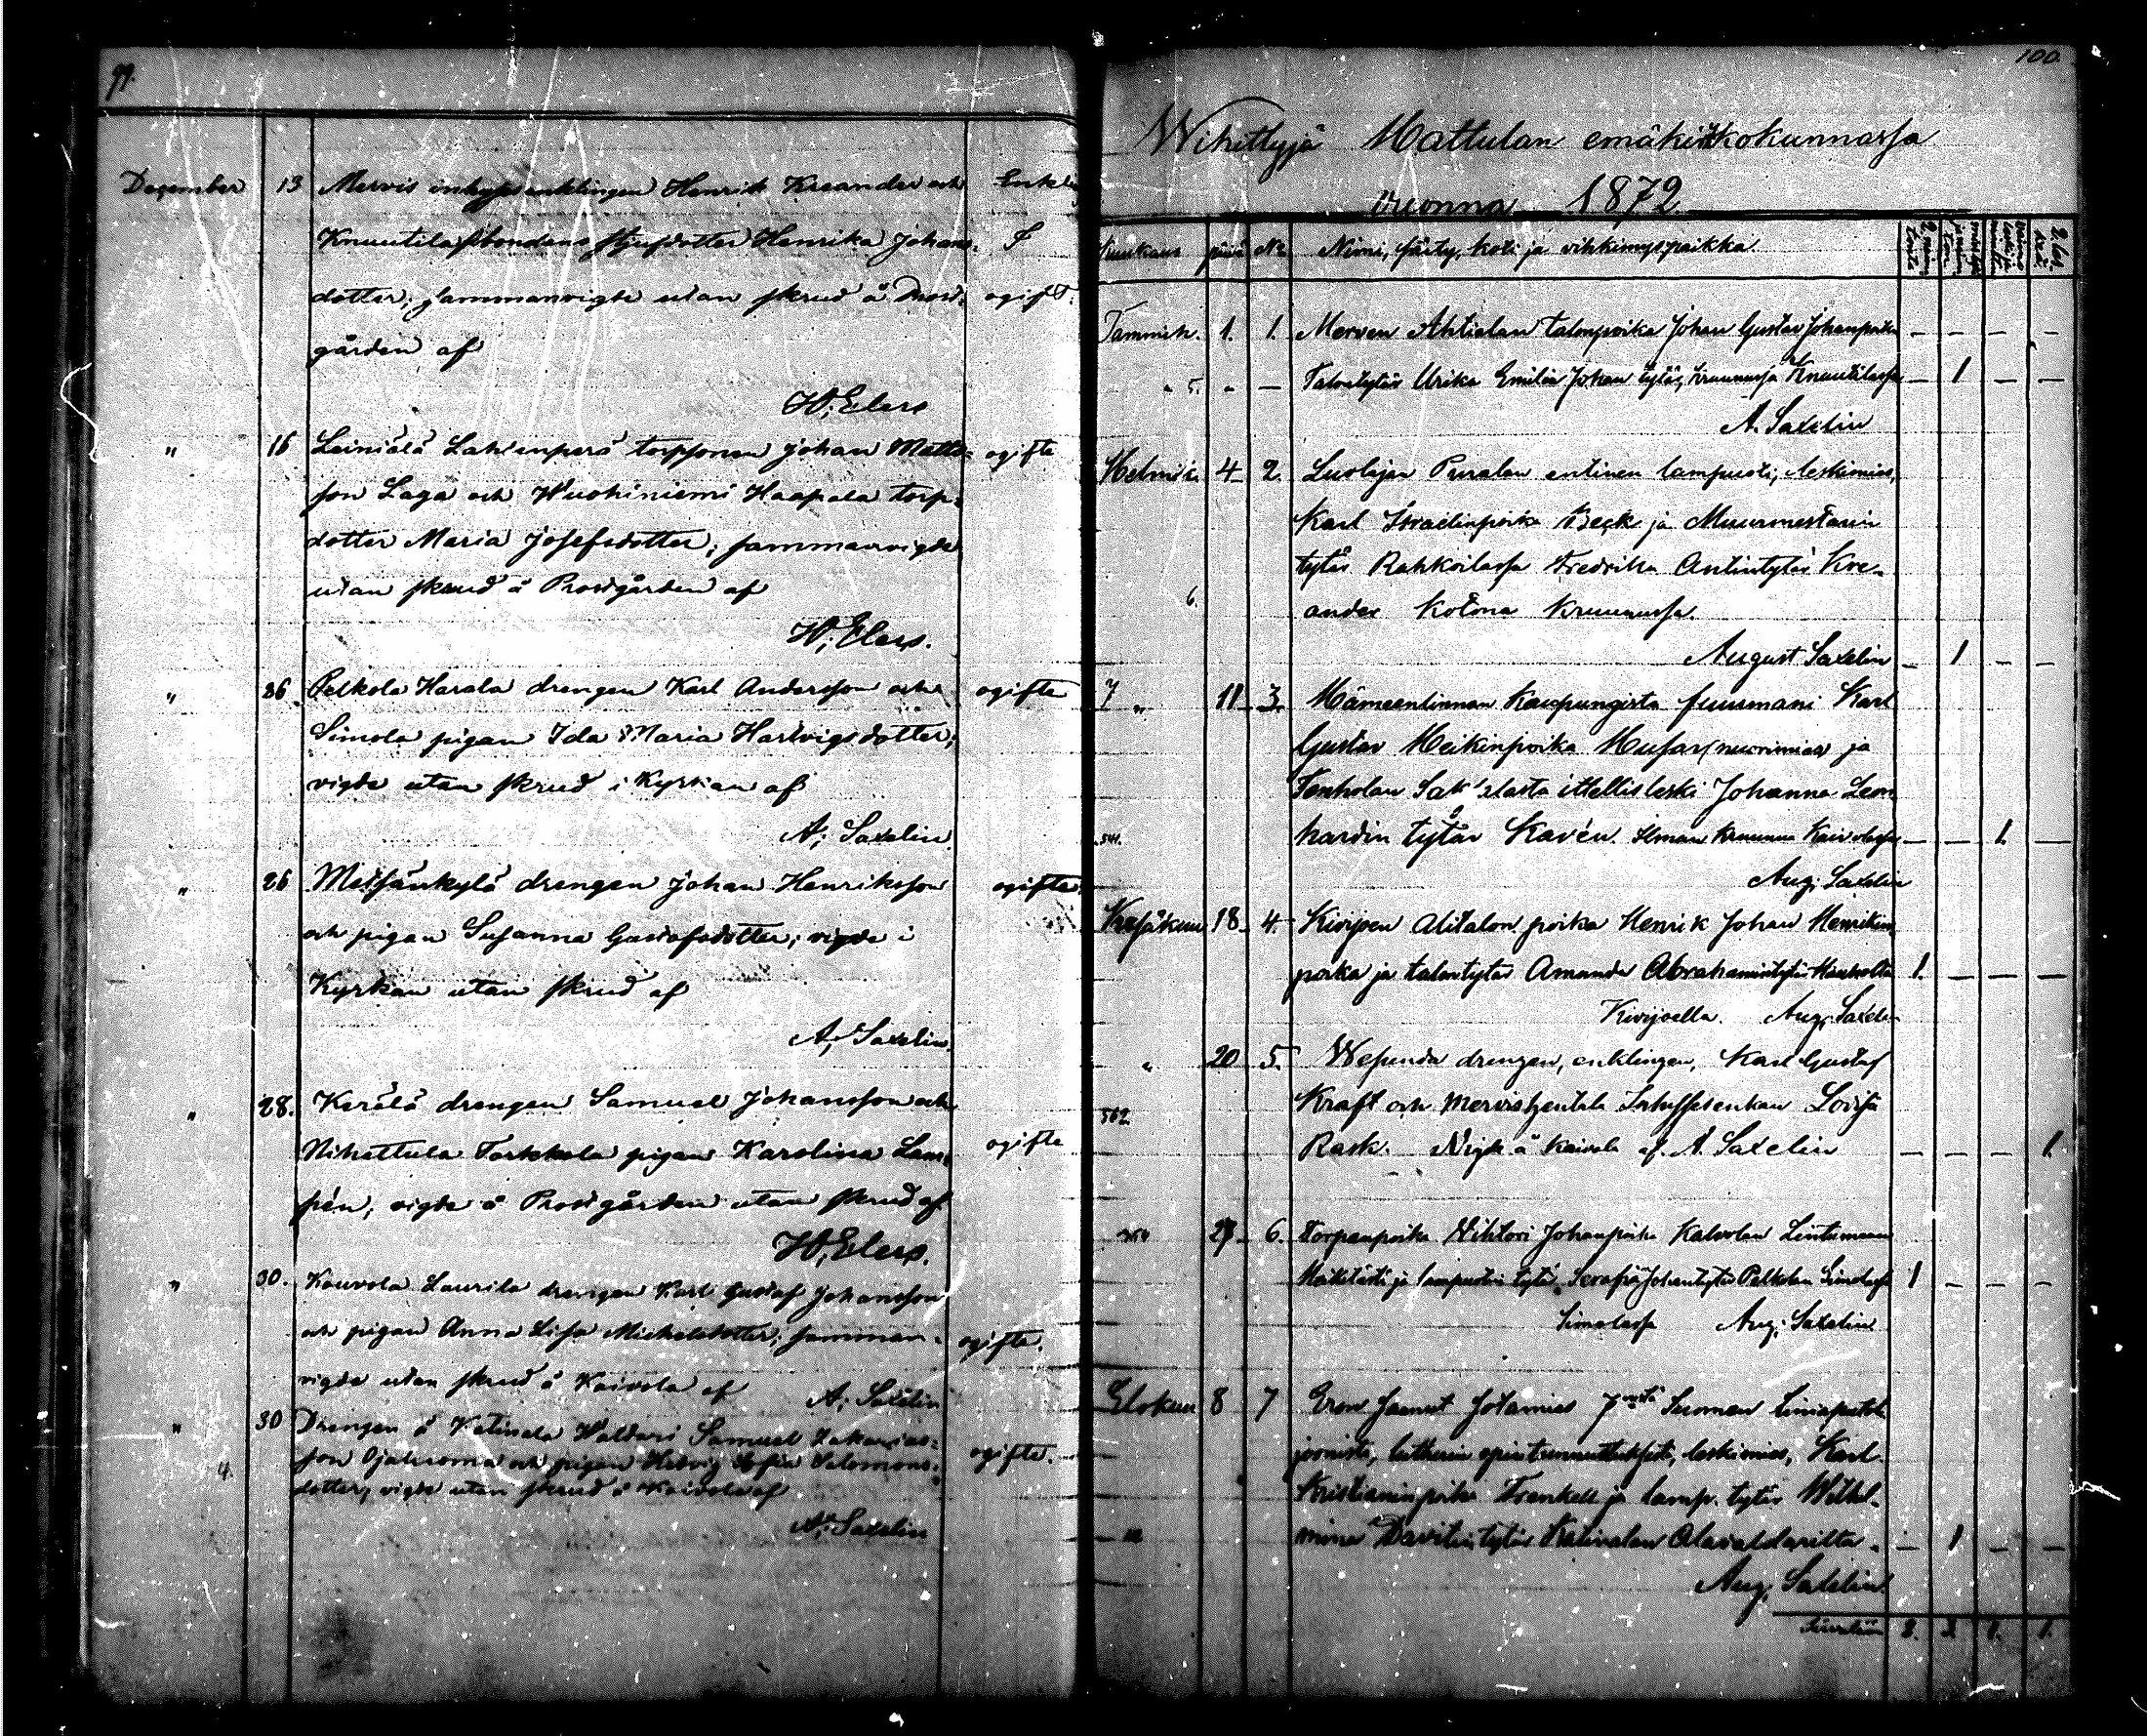 99.
December 13 Mervis inhyses enklingen Henrik Kreander och Enkl
Knuutila bondens styfdotter Henrika Johans-
dotter; sammanvigde utan skrud å Prost- ogift.
gården af
W; Elers
" 16 Leiniälä Lahdenperä torpsonen Johan Matts- ogifte
son Laga och Wuohiniemi Haapala torp-
dotter Maria Josefsdotter; sammanvigde
utan skrud å Prostgården af
W; Elers.
" 26 Pelkola Harala drengen Karl Andersson och ogifte
Simola pigan Ida Maria Hartvigsdotter;
vigde utan skrud i Kyrkan af
A; Saxelin.
" 26 Metsänkylä drengen Johan Henriksson ogifte
och pigan Susanna Gustafsdotter; vigde i
Kyrkan utan skrud af
A; Saxelin.
" 28. Kerälä drengen Samuel Johansson och
Nihattula Torkkola pigan Karolina Lam- ogifte
pén; vigde å Prostgården utan skrud af
W; Elers.
" 30. Kouvola Laurila drengen Karl Gustaf Johansson
och pigan Anna Lisa Michelsdotter; samman- ogifte.
vigde utan skrud å Kaivola af A; Saxelin
" 30 Drengen å Katinala Waldari Samuel Zakarias-
son Ojaluoma och pigan Hedvig Sofia Salomons- ogifte.
dotter, vigde utan skrud å Kaivola af
A; Saxelin
4.
100.
Wihittyjä Hattulan emäkirkkokunnassa
vuonna 1872.
Kuukaus päivä No Nimi, sääty, koti ja vihkimyspaikka.
Tammik. 1. 1. Merven Ahtialan talonpoika Johan Gustav Johanpoika — — — —
5. - — Talontytär Ulrika Emilia Johan tytär, kruunussa Knuutilassa — 1 — —
A. Saxelin
Helmik. 4 2. Suolajan Puralan entinen lampuoti, leskimies,
Karl Israelinpoika Beck ja Muurmestarin
tytär Rahkoilassa Fredrika Antintytär Kre-
6. ander kotona kruunussa.
August Saxelin — 1 — —
7 " 11 3. Hämeenlinnan Kaupungista fuurmani Karl
Gustav Heikinpoika Husar (nuorimies) ja
Tenholan itellisleski Johanna Leon
541. hardin tytär Kavén. Ilman kruunua Kaivolassa — — 1. —
Aug; Saxelin
Kesäkuu 18 4. Kivijoen Alitalon poika Henrik Johan Henrikin
poika ja talontytär Amanda Abrahamintytär 1. — — —
Kivijoella. Aug; Saxelin
" 20 5. Wesunda drengen, enklingen, Karl Gustaf
562. Kraft och Mervis Lovisa
Rask. Vigde å Kaivola af A. Saxelin — — — 1
27 6. Torpanpoika Vihtori Johanpoika Kalvolan
ja lampuotin tytär Serafia Johantytär Pelkolan Simolassa 1 — — —
Simolassa Aug; Saxelin
Elokuu 8 7 Eron saanut sotamies 7:nestä Suomen
leskimies, Karl
Kristianinpoika Frenkell ja lamp. tytär Wilhel-
mina Davitin tytär Katinalan Alavaldarilta. — 1 — —
Aug; Saxelin.
3. 1. 1.